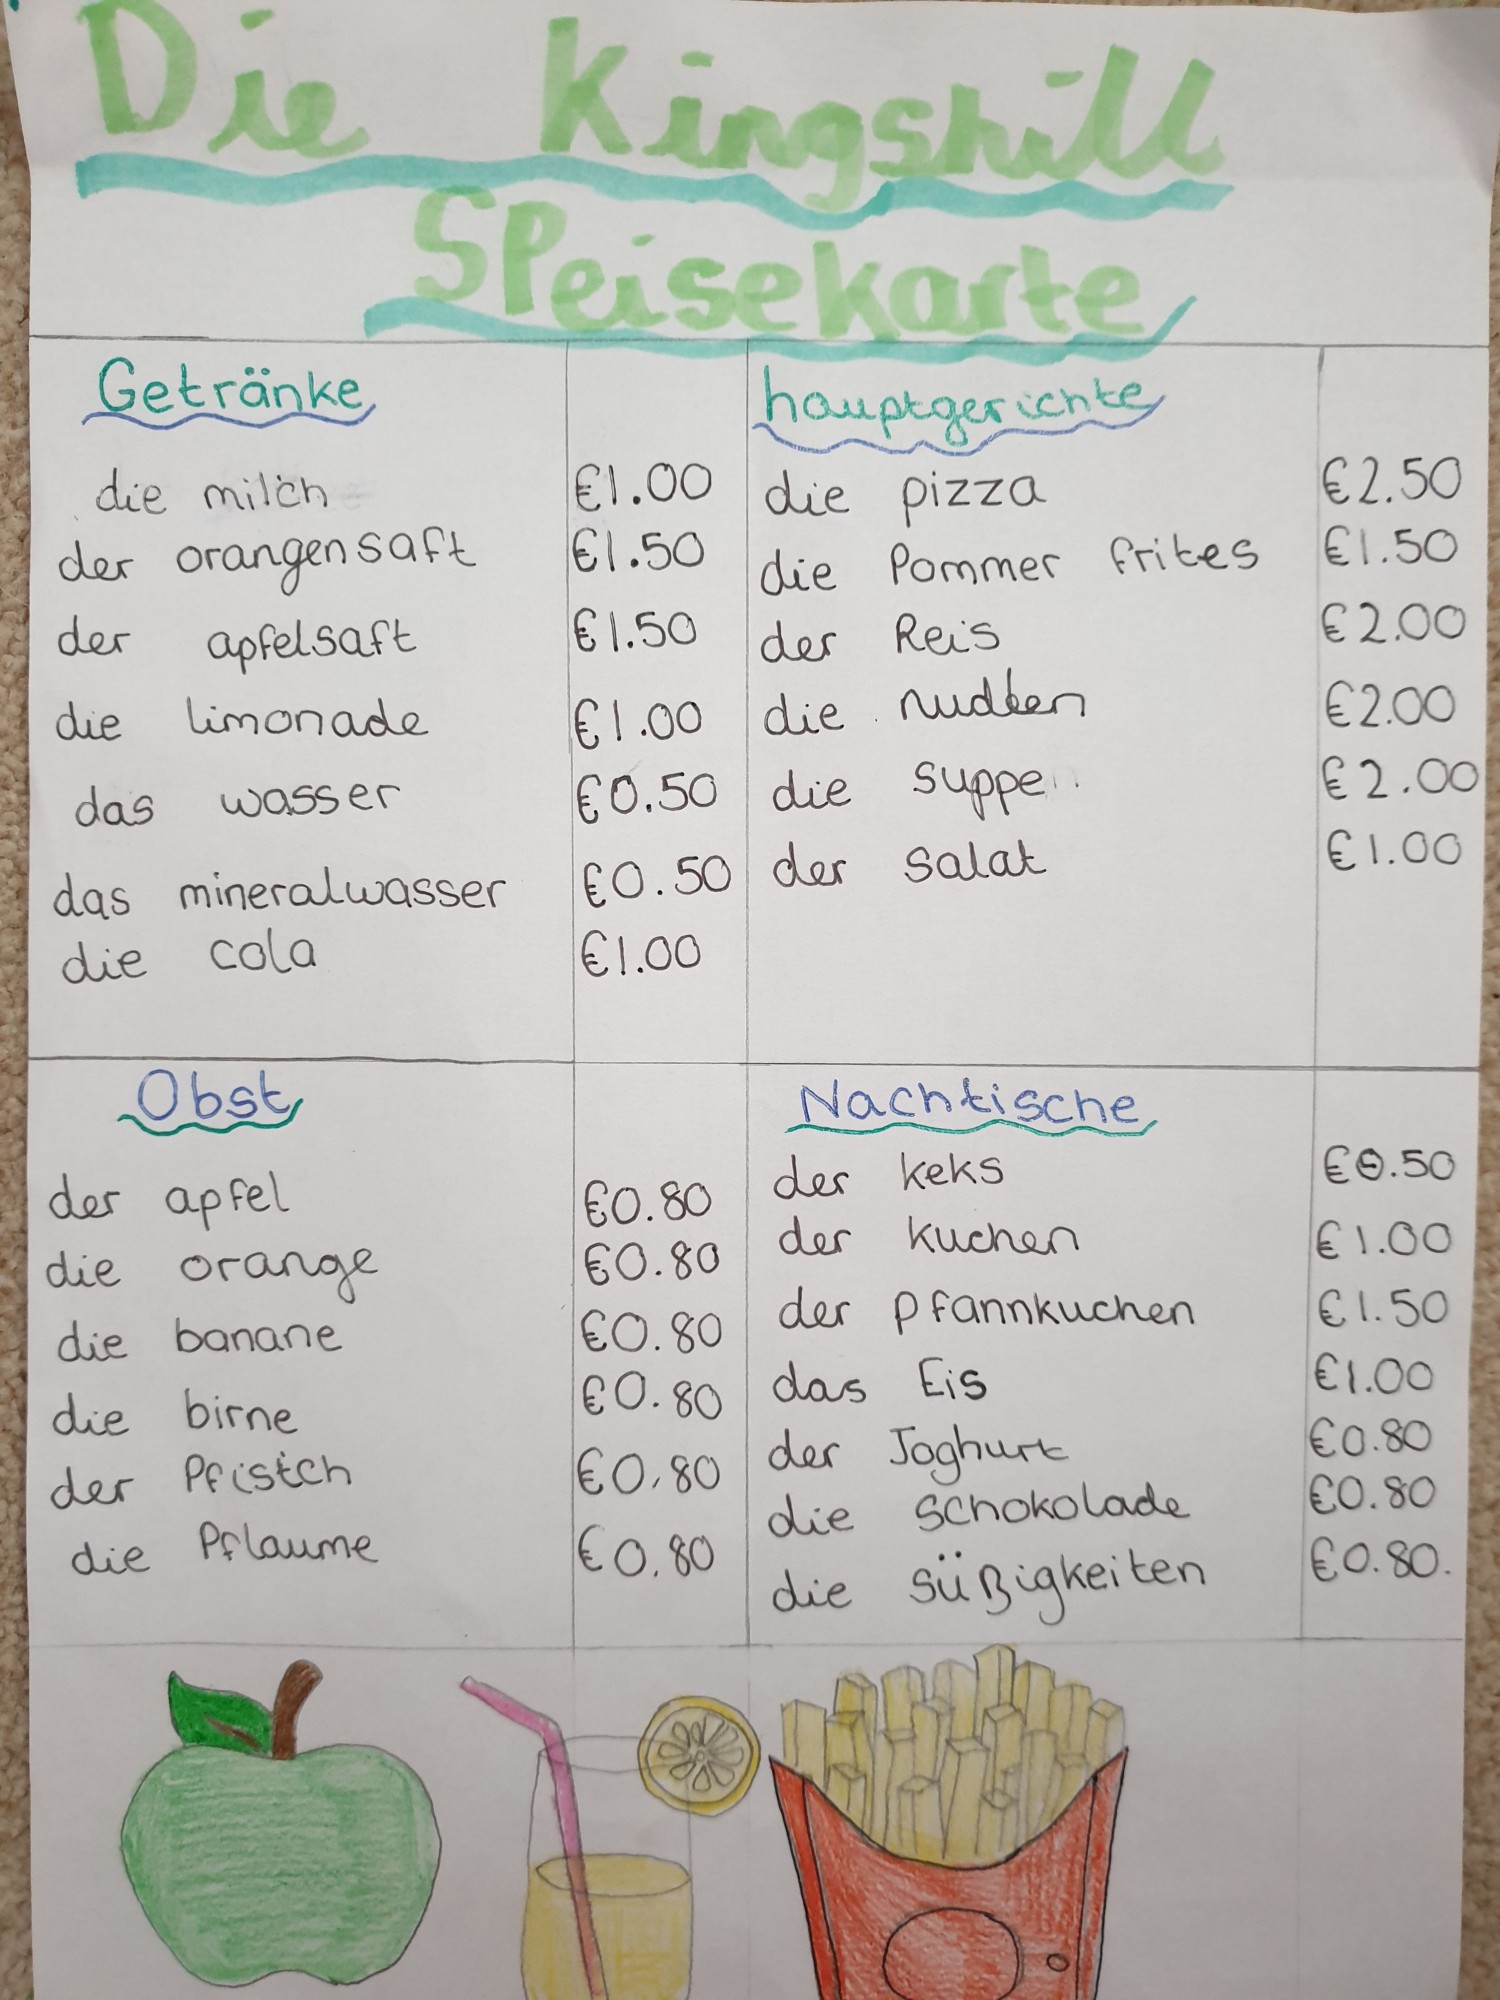 Die Kingshill
Speisekarte
Getränke
die milch €1.00
der orangensaft €1.50
der apfelsaft €1.50
die limonade €1.00
das wasser €0.50
das mineralwasser €0.50
die cola €1.00
hauptgerichte
die pizza €2.50
die Pommer frites €1.50
der Reis €2.00
die nudeln €2.00
die suppe €2.00
der salat €1.00
Obst
der apfel €0.80
die orange €0.80
die banane €0.80
die birne €0.80
der Pfistch €0.80
die Pflaume €0.80
Nachtische
der keks €0.50
der kuchen €1.00
der pfannkuchen €1.50
das Eis €1.00
der Joghurt €0.80
die schokolade €0.80
die süßigkeiten €0.80.